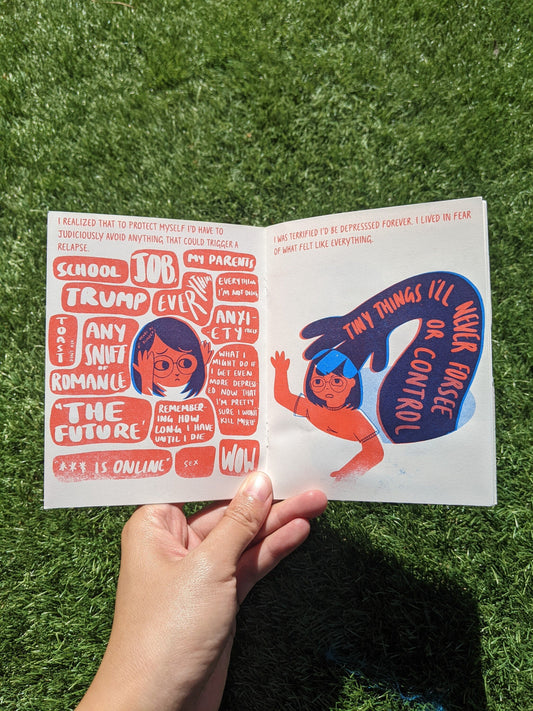 I REALIZED THAT TO PROTECT MYSELF I'D HAVE TO
JUDICIOUSLY AVOID ANYTHING THAT COULD TRIGGER A
RELAPSE.
SCHOOL
JOB,
MY PARENTS
TRUMP
EVERYTHING
EVERYTHING
I'M NOT DOING
TOAST
ANY
SNIFF
OF
ROMANCE
ANXI-
-ETY
WHAT I
MIGHT DO IF
I GET EVEN
MORE DEPRESS
ED NOW THAT
I'M PRETTY
SURE I WONT
KILL MYSELF
"THE
FUTURE"
REMEMBER-
ING HOW
LONG I HAVE
UNTIL I DIE
*** IS ONLINE"
SEX
WOW
I WAS TERRIFIED I'D BE DEPRESSSED FOREVER. I LIVED IN FEAR
OF WHAT FELT LIKE EVERYTHING.
TINY THINGS I'LL NEVER FORSEE
OR CONTROL